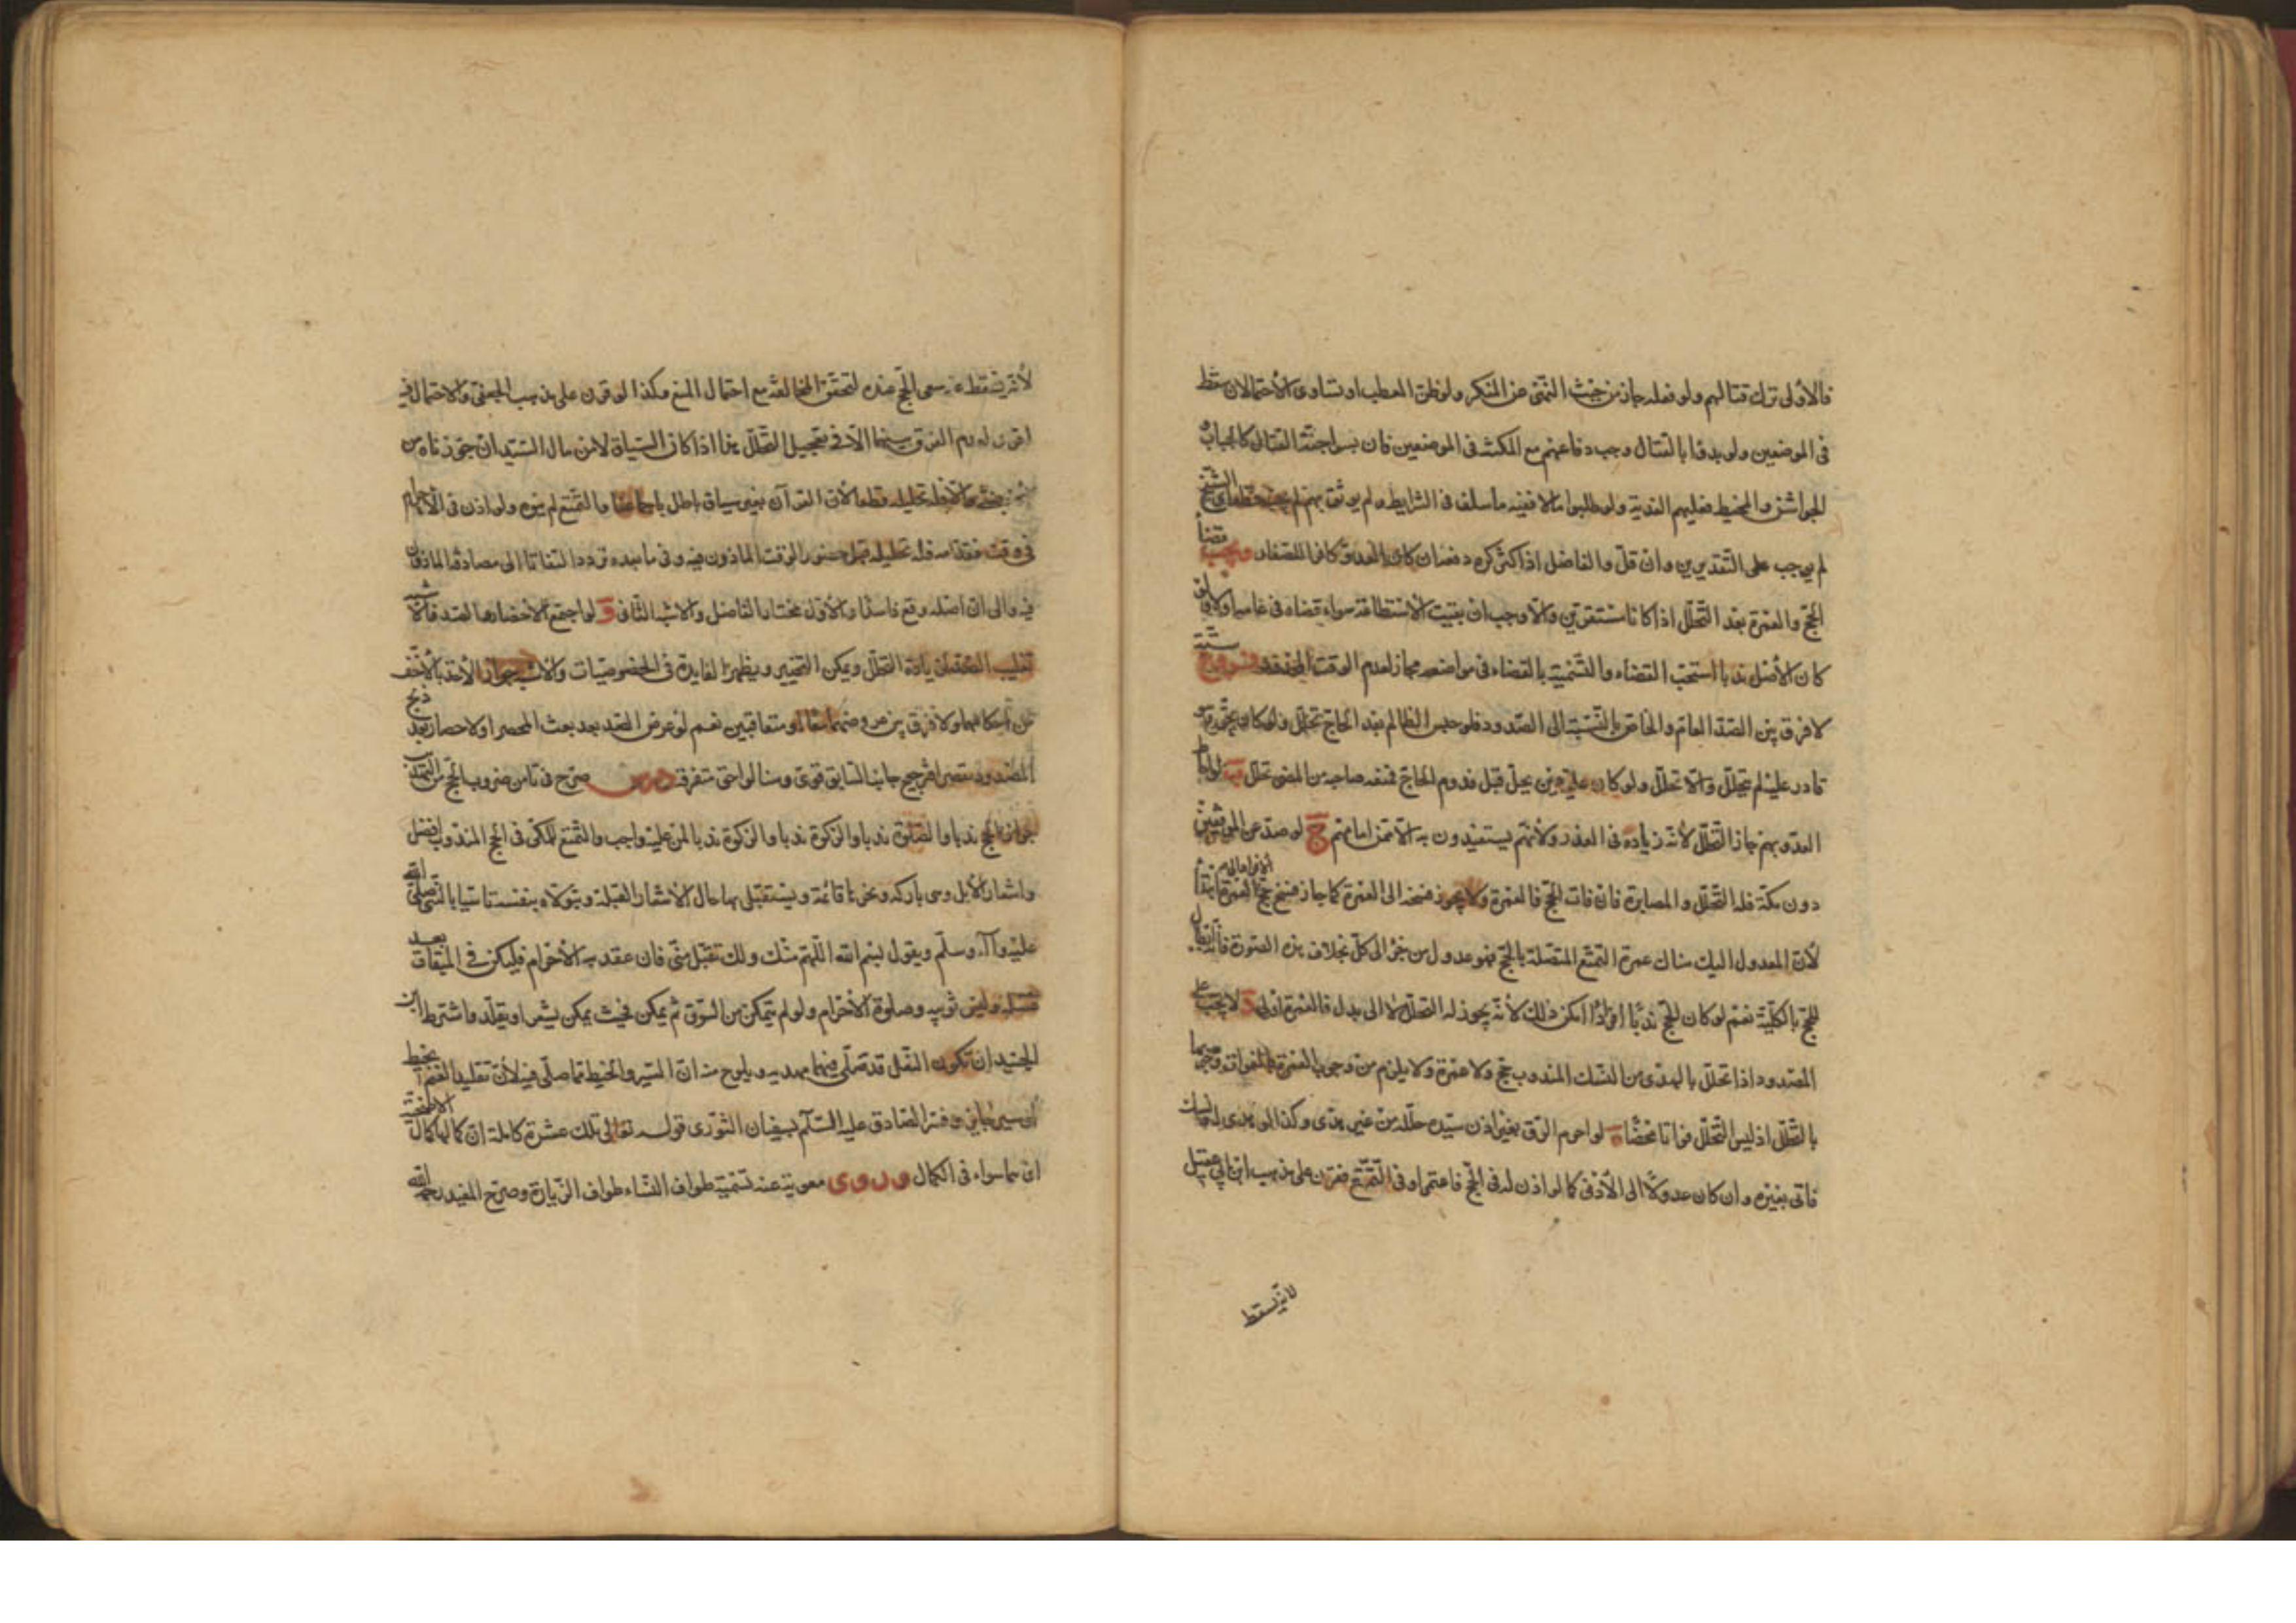 فالأولى ترك قتالهم ولو فعله جاز من حيث النهي عن المنكر ولو ظن العطب او تساوى الاحتمالان سقط
في الموضعين ولو بدؤا بالقتال وجب دفاعهم مع المكنة في الموضعين فان لبسوا جنة القتال كالجباب
الجواشن والمخيط فعليهم الفدية ولو طلبوا مالا ففيه ما سلف في الشرايط ولو لم يوثق بهم لم يجب الشيخ
لم يوجب على التقديرين وان قل والفاضل اذا كثر كره دفعه ان كان العدو كافرا للصغار ويجب قضاء
الحج والعمرة بعد التحلل اذا كانا مستقرين والا وجب ان بقيت الاستطاعة سواء قضاه في عامه او لا ولو
كان الأصل ندبا استحب القضاء والتسمية بالقضاء في مواضعه مجاز لعدم الوقت المحدد فروع ستة
لا فرق بين الصد العام والخاص بالنسبة الى الصدود فلو حبس الظالم بعض الحاج تحلل ولو كان بحق هو
قادر عليه لم يتحلل والا تحلل ولو كان عليه دين يحل قبل قدوم الحاج فمنعه صاحبه من المضى تحلل ب لو احاط
العدو بهم جاز التحلل لأنه زيادة في العذر ولأنهم يستفيدون به الأمن امامهم ج لو صد عن الموقفين
دون مكة فله التحلل والمصابرة فان فات الحج فالعمرة ولا يجوز فسخه الى العمرة كما جاز فسخ حج
لأن المعدول اليه هناك عمرة التمتع المتصلة بالحج فهو عدول من جزء الى كل بخلاف هذه الصورة فانه ابطال
للحج بالكلية نعم لو كان الحج ندبا افرادا امكن ذلك لأنه يجوز له التحلل لا الى بدل فالعمرة اولى د لا يجب على
المصدود اذا تحلل بالهدى من النسك المندوب حج ولا عمرة ولا يلزم من وجوب العمرة بالفوات وجوبها
بالتحلل اذ ليس التحلل فواتا محضا ه لو احرم الرق بغير اذن سيده حلله من غير هدى وكذا لو هدى له نسك
فاتى بغيره وان كان عدولا الى الأدنى كما لو اذن له في الحج فاعتمر او في التمتع فقرن على مذهب ابن ابي عقيل
لأنه يسقط
لأنه يسقط عنه سعى الحج عنده لتحقق المخالفة مع احتمال المنع وكذا لو قرن على مذهب الجعفي والاحتمال فيه
اقوى لعدم الفرق بينهما الا في تعجيل التحلل هنا اذا كان السياق لا من مال السيد ان جوزناه من
غيره والا فله تحليله قطعا لأن القرآن بغير سياق باطل باجماعنا والتمتع لم ينوه ولو اذن في الاحرام
في وقت فقدمه فله تحليله قبل حضور الوقت الماذون فيه وفي ما بعده تردد التفاتا الى مصادفة الماذون
فيه والى ان اصله وقع فاسدا والأول مختار الفاضل والاشبه الثاني و لو اجتمع الاحصار والصد فالأشبه
تغليب الصد لزيادة التحلل ويمكن التخيير ويظهر الفايدة في الخصوصيات والاشبه جواز الأخذ بالأخف
من احكامهما ولا فرق بين عروضهما معا او متعاقبين نعم لو عرض الصد بعد بعث المحصر او الاحصار بعد ذبح
المصدود ولما يقصر فترجيح جانب السابق قوي وهنا لواحق متفرقة درس صرح في تامن ضروب الحج من التهذيب
بجواز الحج ندبا والصلوة ندبا والزكوة ندبا لمن عليه واجب والتمتع للمكى في الحج المندوب افضل
واشعار الأبل وهى باركة ونحرها قائمة ويستقبل بها حال الاشعار القبلة ويتولاه بنفسه تاسيا بالنبى صلى الله
عليه وآله وسلم ويقول بسم الله اللهم منك ولك تقبل منى فان عقد به الأحرام فليكن في الميقات بعد
غسله ولبس ثوبيه وصلوة الأحرام ولو لم يتمكن من السوق ثم يمكن فحيث يمكن يشعر او يقلد واشترط ابن
الجنيد ان تكون النعل قد صلى فيها مهديه ويلوح منه ان السير والخيط مما صلى فيه لأن تقليد الغنم بخيط
او سير جايز وفسر الصادق عليه السلام لسفيان الثوري قوله تعالى تلك عشرة كاملة ان كمالها كمال الأضحية
اى هما سواء في الكمال وروى معوية عنه تسمية طواف النساء طواف الزيارة وصرح المفيد رحمه الله